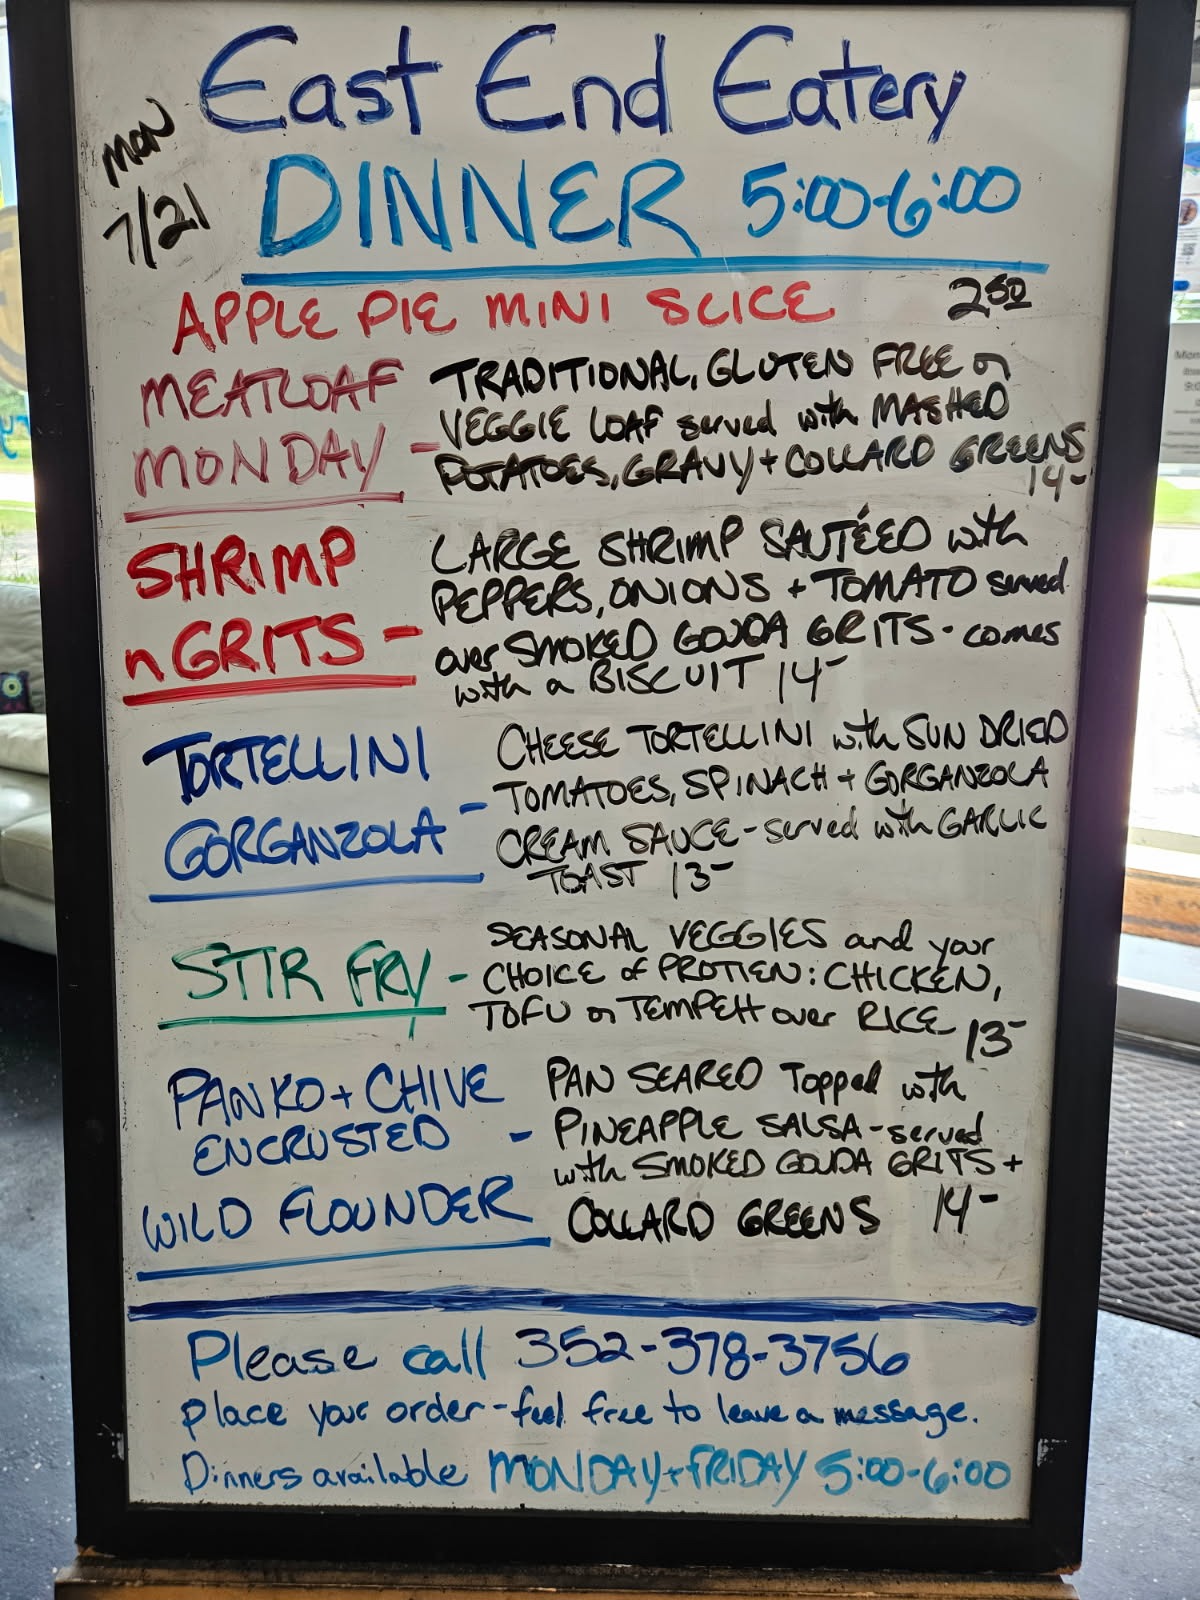 East End Eatery
MON
7/21
DINNER 5:00-6:00
APPLE PIE MINI SLICE 2.50
MEATLOAF
MONDAY -
TRADITIONAL, GLUTEN FREE or
VEGGIE LOAF served with MASHED
POTATOES, GRAVY + COLLARD GREENS
14-
SHRIMP
n GRITS -
LARGE SHRIMP SAUTÉED with
PEPPERS, ONIONS + TOMATO served
over SMOKED GOUDA GRITS - comes
with a BISCUIT 14-
TORTELLINI
GORGANZOLA -
CHEESE TORTELLINI with SUN DRIED
TOMATOES, SPINACH + GORGANZOLA
CREAM SAUCE - served with GARLIC
TOAST 13-
STIR FRY -
SEASONAL VEGGIES and your
CHOICE of PROTIEN: CHICKEN,
TOFU or TEMPEH over RICE 13-
PANKO + CHIVE
ENCRUSTED -
WILD FLOUNDER
PAN SEARED Topped with
PINEAPPLE SALSA - served
with SMOKED GOUDA GRITS +
COLLARD GREENS 14-
Please call 352-378-3756
place your order - feel free to leave a message.
Dinners available MONDAY + FRIDAY 5:00-6:00